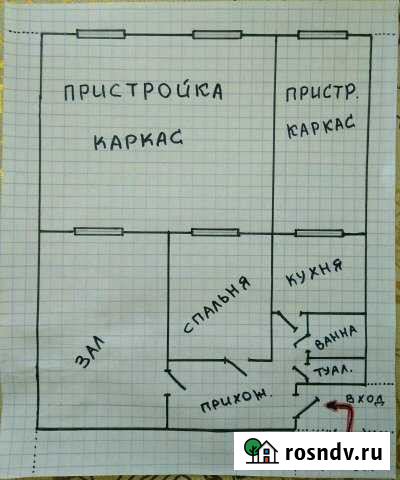 ПРИСТРОЙКА
КАРКАС
ПРИСТР.
КАРКАС
ЗАЛ
СПАЛЬНЯ
КУХНЯ
ВАННА
ТУАЛ.
ПРИХОЖ.
ВХОД
rosndv.ru